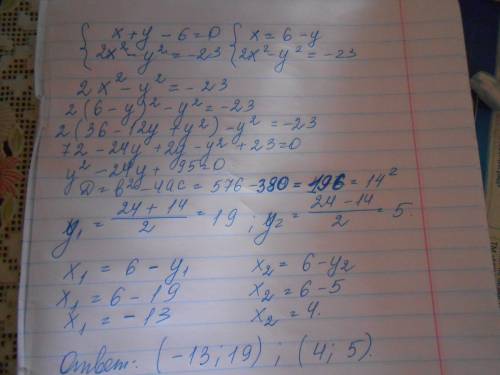 { x + y - 6 = 0 { x = 6 - y
{ 2x² - y² = -23 { 2x² - y² = -23
2x² - y² = -23
2(6 - y)² - y² = -23
2(36 - 12y + y²) - y² = -23
72 - 24y + 2y - y² + 23 = 0
y² - 24y + 95 = 0
D = b² - 4ac = 576 - 380 = 196 = 14²
y₁ = (24 + 14)/2 = 19 ; y₂ = (24 - 14)/2 = 5.
x₁ = 6 - y₁ x₂ = 6 - y₂
x₁ = 6 - 19 x₂ = 6 - 5
x₁ = -13 x₂ = 4.
Ответ: (-13; 19) ; (4; 5).